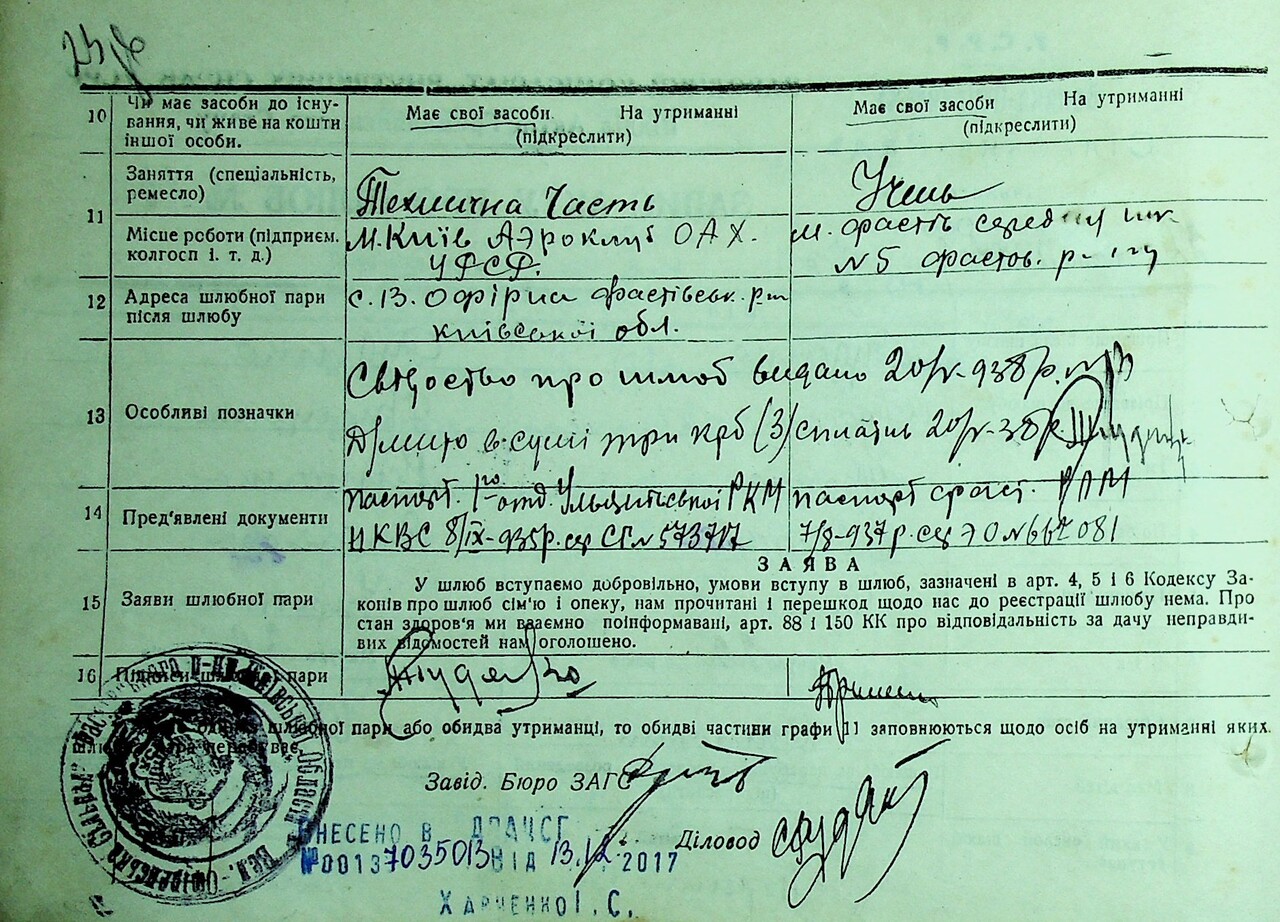 10 Чи має засоби до існу-
вання, чи живе на кошти
іншої особи.
Має свої засоби. На утриманні
(підкреслити)
Має свої засоби На утриманні
(підкреслити)
11 Заняття (спеціальність,
ремесло)
Технична Часть
Учень
Місце роботи (підприєм.
колгосп і. т. д.)
м. Київ Аэроклуб ОАХ.
м. Фастів середня шк
№5 Фастов.
12 Адреса шлюбної пари
після шлюбу
с. В. Офірна Фастівськ. р-н
Київської обл.
13 Особливі позначки
про шлюб видано 20/ 938 р. №
в сумі три крб (3) сплатив 20/
14 Пред'явлені документи
паспорт. РКМ
НКВС 8/IX-935р. сер СГ № 573717
паспорт Фаст.
937р. сер №662081
ЗАЯВА
15 Заяви шлюбної пари
У шлюб вступаємо добровільно, умови вступу в шлюб, зазначені в арт. 4, 5 і 6 Кодексу За-
конів про шлюб сім'ю і опеку, нам прочитані і перешкод щодо нас до реєстрації шлюбу нема. Про
стан здоров'я ми взаємно поінформавані, арт. 88 і 150 КК про відповідальність за дачу неправди-
вих відомостей нам оголошено.
16 Підписи шлюбної пари
шлюбної пари або обидва утриманці, то обидві частини графи 11 заповнюються щодо осіб на утриманні яких
шлюбна пара перебуває.
Завід. Бюро ЗАГС
Діловод
ВНЕСЕНО В ДРАЦСГ
№00137035013 ВІД 13.12.2017
Харченко І. С.